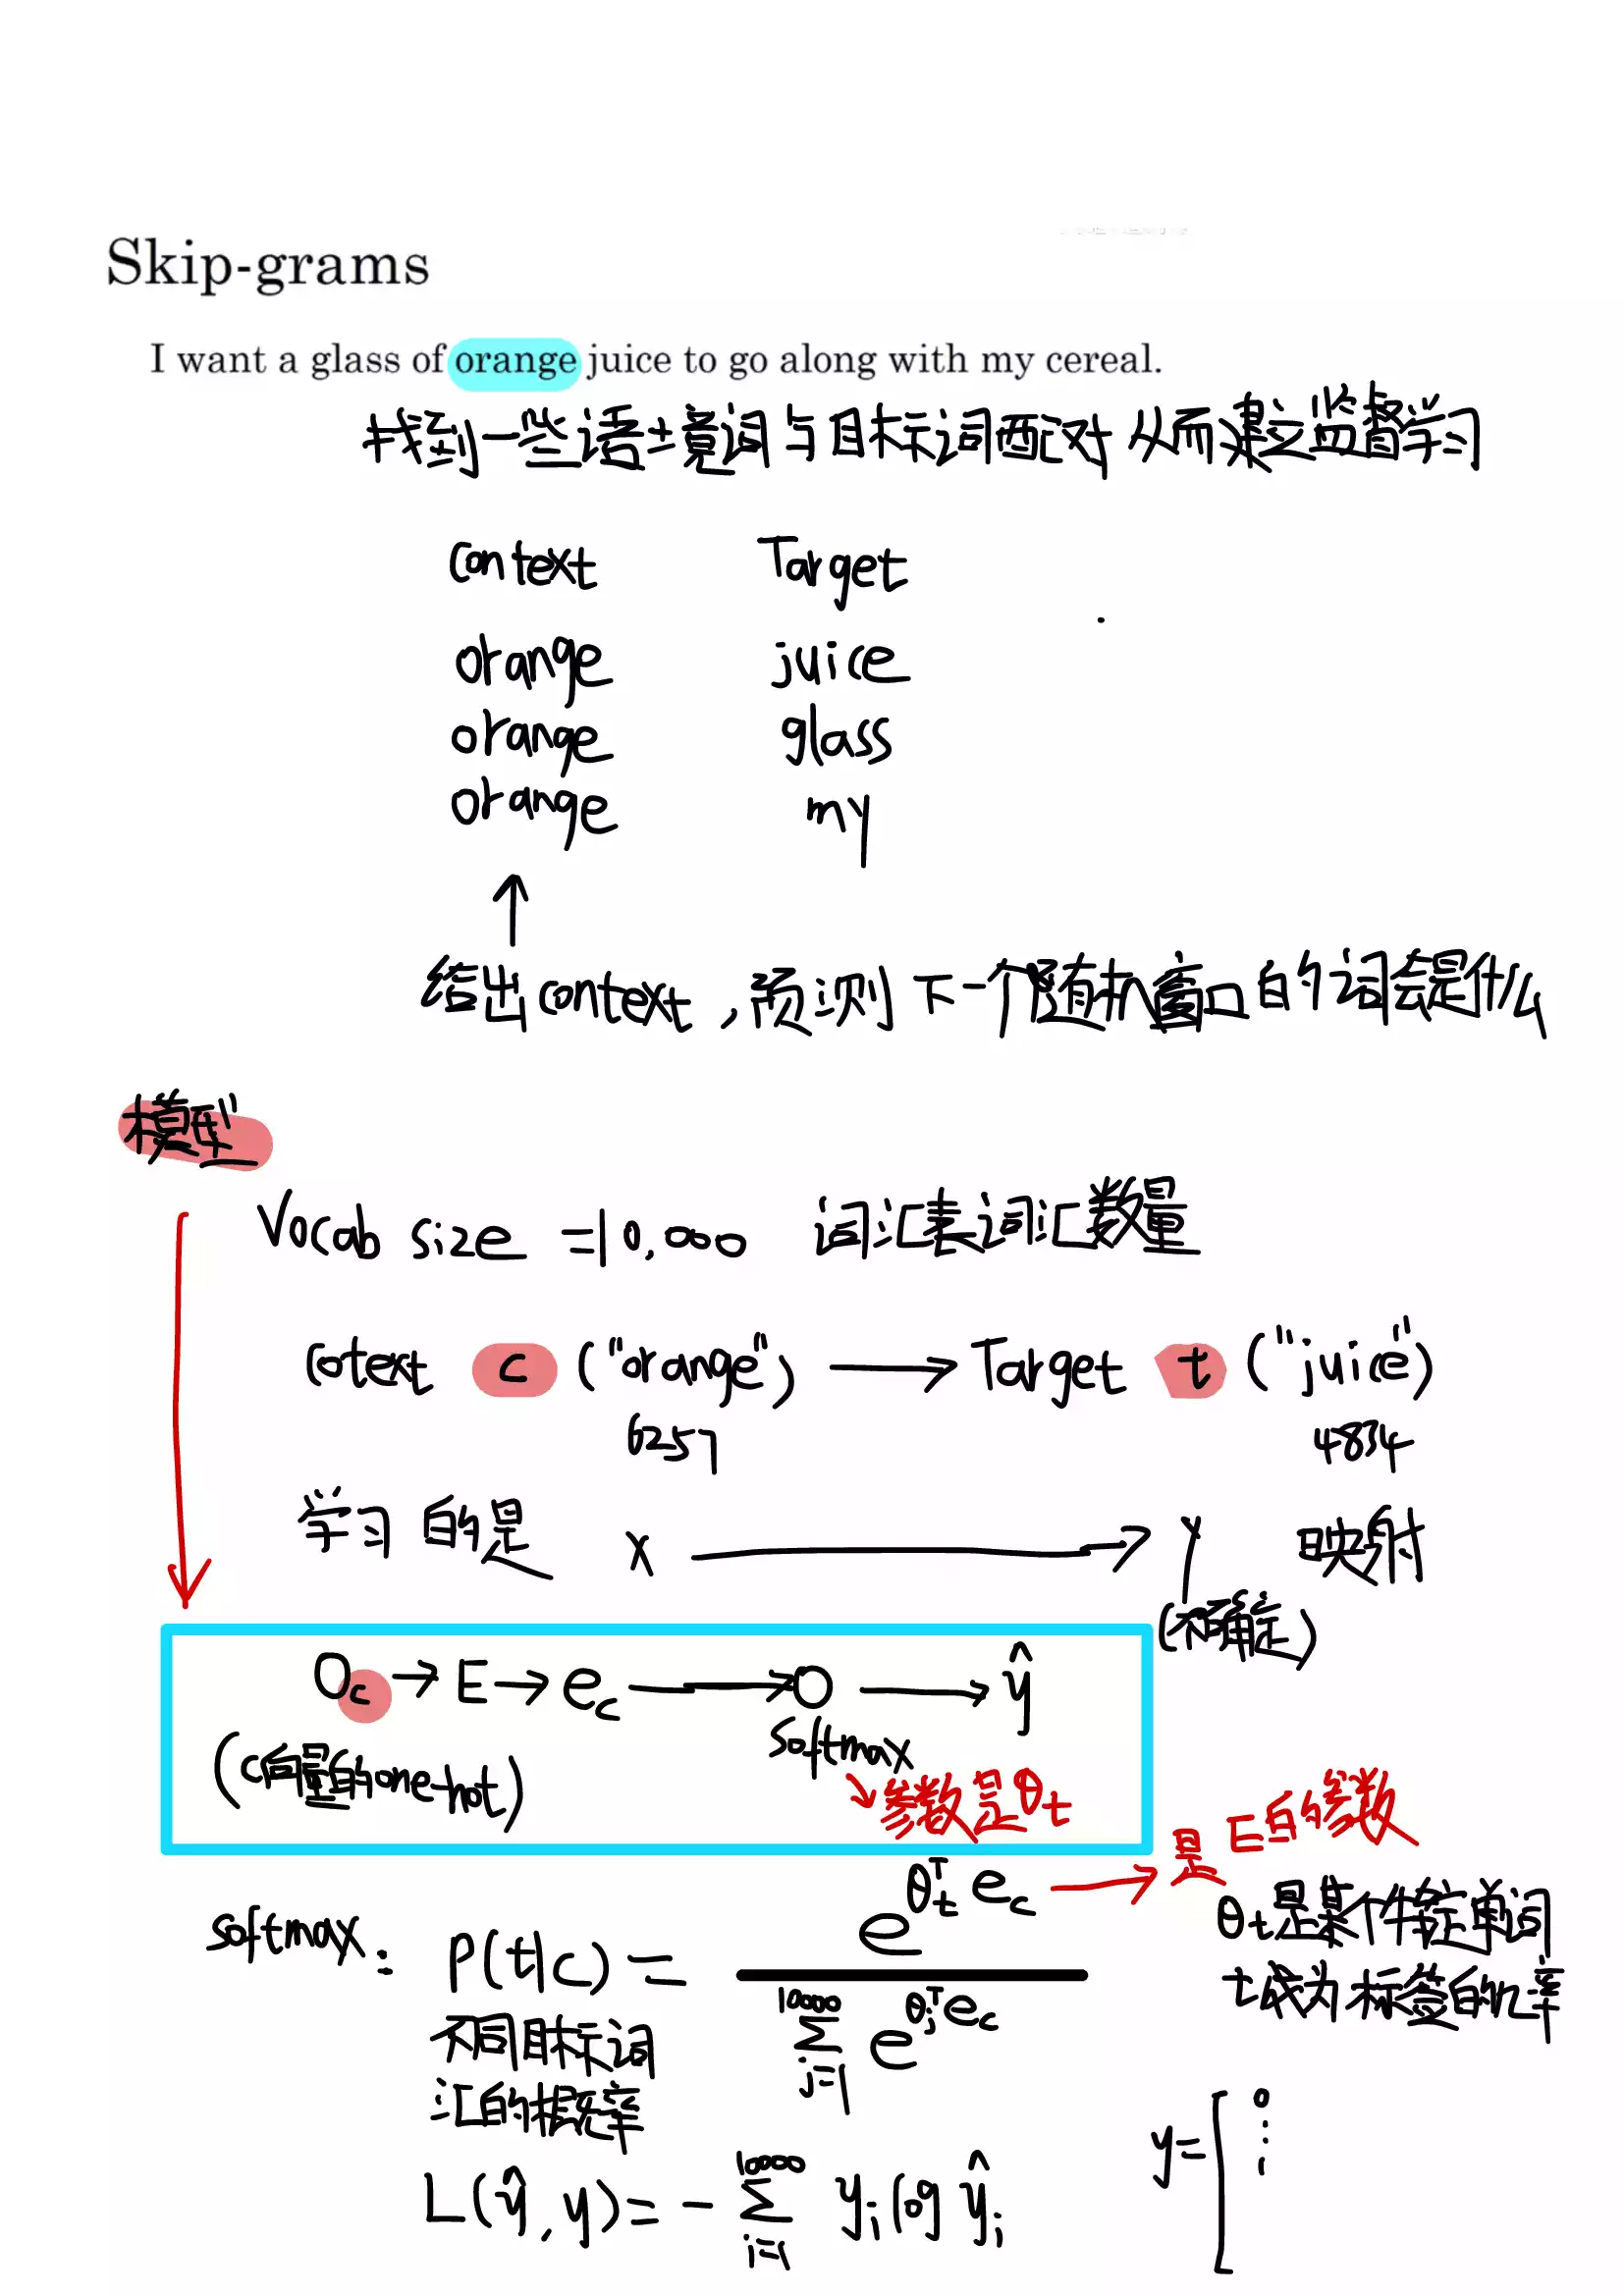 Skip-grams
I want a glass of orange juice to go along with my cereal.
找到一些语境词与目标词配对 从而建立监督学习
context Target
orange juice
orange glass
orange my
↑
给出context，预测下一个随机窗口的词会是什么
模型
Vocab size =10,000 词汇表词汇数量
cotext c ("orange") → Target t ("juice")
6257 4834
学习的是 x → y 映射
(不确定)
Oc → E → ec → O → ŷ
softmax
(c向量的one-hot)
↘参数是θt
→是E的参数
θt是某个特定单词
t成为标签的几率
softmax: P(t|c) = e^(θt^T ec) / Σ_{j=1}^{10000} e^(θj^T ec)
不同目标词
汇的概率
y=[0
⋮
L(ŷ,y)= - Σ_{i=1}^{10000} yi log ŷi